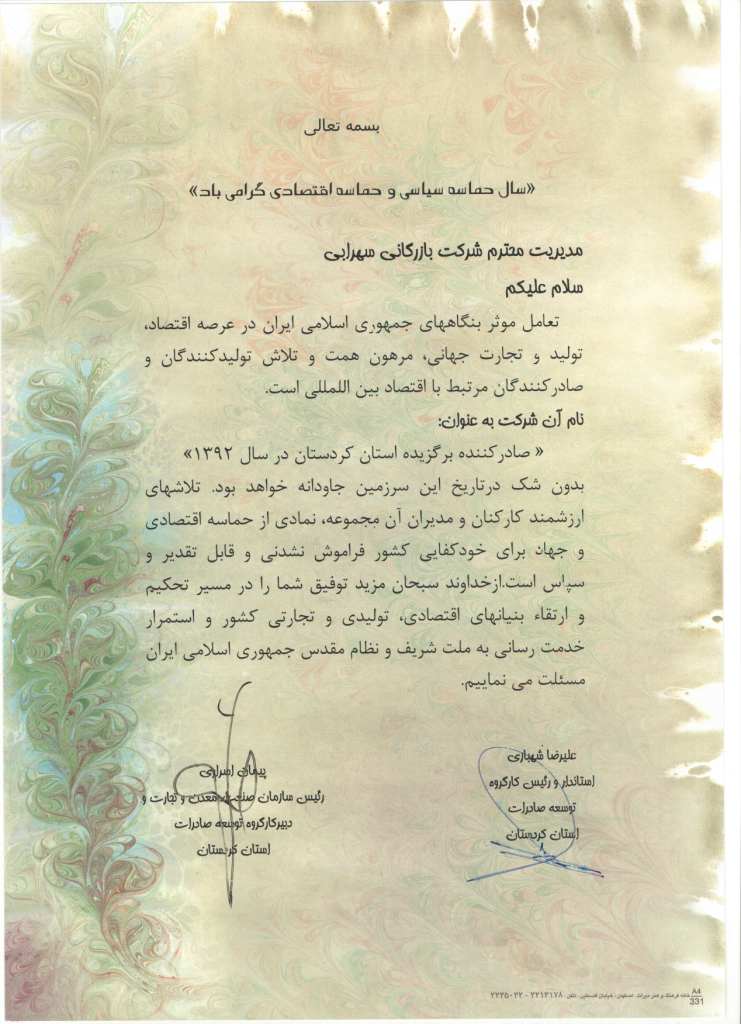 بسمه تعالی
«سال حماسه سیاسی و حماسه اقتصادی گرامی باد»
مدیریت محترم شرکت بازرگانی سهرابی
سلام علیکم
تعامل موثر بنگاههای جمهوری اسلامی ایران در عرصه اقتصاد،
تولید و تجارت جهانی، مرهون همت و تلاش تولیدکنندگان و
صادرکنندگان مرتبط با اقتصاد بین المللی است.
نام آن شرکت به عنوان:
« صادرکننده برگزیده استان کردستان در سال ۱۳۹۲»
بدون شک درتاریخ این سرزمین جاودانه خواهد بود. تلاشهای
ارزشمند کارکنان و مدیران آن مجموعه، نمادی از حماسه اقتصادی
و جهاد برای خودکفایی کشور فراموش نشدنی و قابل تقدیر و
سپاس است.ازخداوند سبحان مزید توفیق شما را در مسیر تحکیم
و ارتقاء بنیانهای اقتصادی، تولیدی و تجارتی کشور و استمرار
خدمت رسانی به ملت شریف و نظام مقدس جمهوری اسلامی ایران
مسئلت می نماییم.
علیرضا شهبازی
استاندار و رئیس کارگروه
توسعه صادرات
استان کردستان
پیمان اسراری
رئیس سازمان صنعت، معدن و تجارت و
دبیرکارگروه توسعه صادرات
استان کردستان
A4
331
خانه فرهنگ و هنر میراث اصفهان، خیابان فلسطین، تلفن